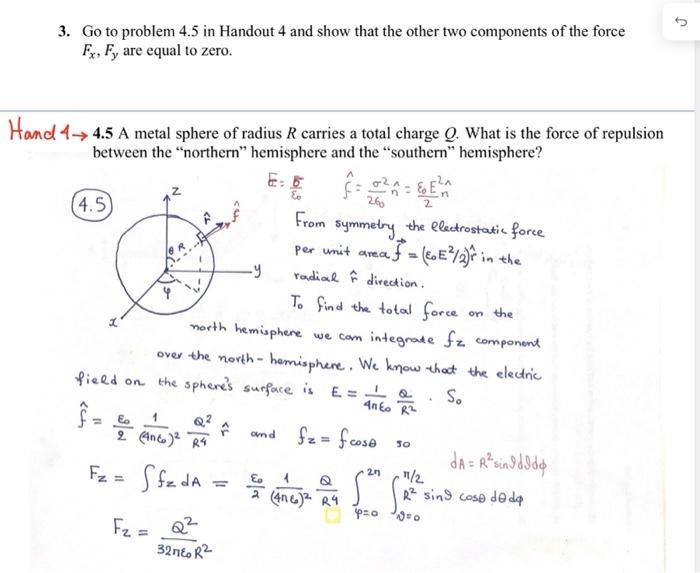 3. Go to problem 4.5 in Handout 4 and show that the other two components of the force
Fx, Fy are equal to zero.
Hand 4→ 4.5 A metal sphere of radius R carries a total charge Q. What is the force of repulsion
between the “northern” hemisphere and the “southern” hemisphere?
4.5
z
r̂
f̂
θ
R
y
φ
x
E = σ/ε₀ f̂ = σ²/2ε₀ n̂ = ε₀E²/2 n̂
From symmetry the electrostatic force
per unit area f⃗ = (ε₀E²/2)r̂ in the
radial r̂ direction.
To find the total force on the
north hemisphere we can integrate fz component
over the north-hemisphere. We know that the electric
field on the sphere's surface is E = 1/4πε₀ Q/R² . So
f̂ = ε₀/2 1/(4πε₀)² Q²/R⁴ r̂ and fz = f cosθ so
dA = R² sinϑ dϑ dφ
Fz = ∫ fz dA = ε₀/2 1/(4πε₀)² Q/R⁴ ∫φ=0 2π ∫ϑ=0 π/2 R² sinϑ cosθ dθ dφ
Fz = Q²/32πε₀R²